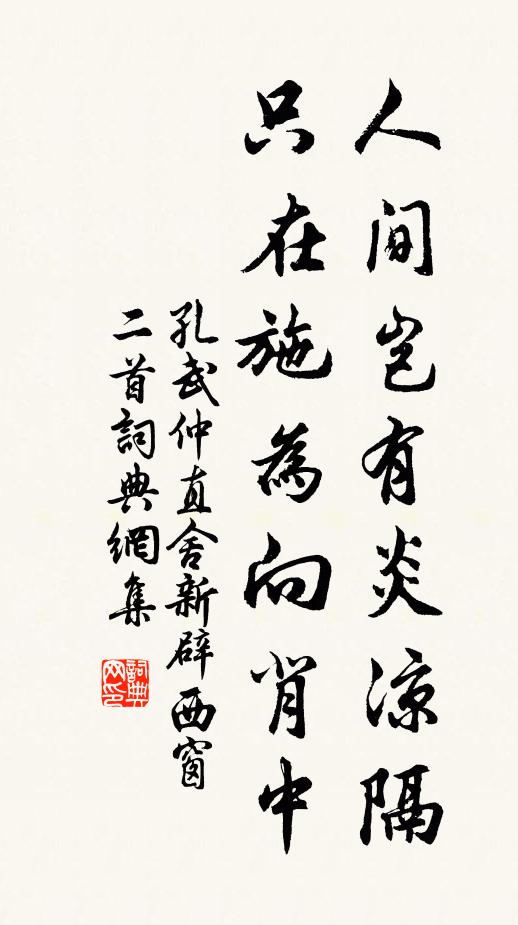 人間豈有炎涼隔
只在施為向背中
孔武仲直舍新辟西窗
二首詞典網集
詞典网印